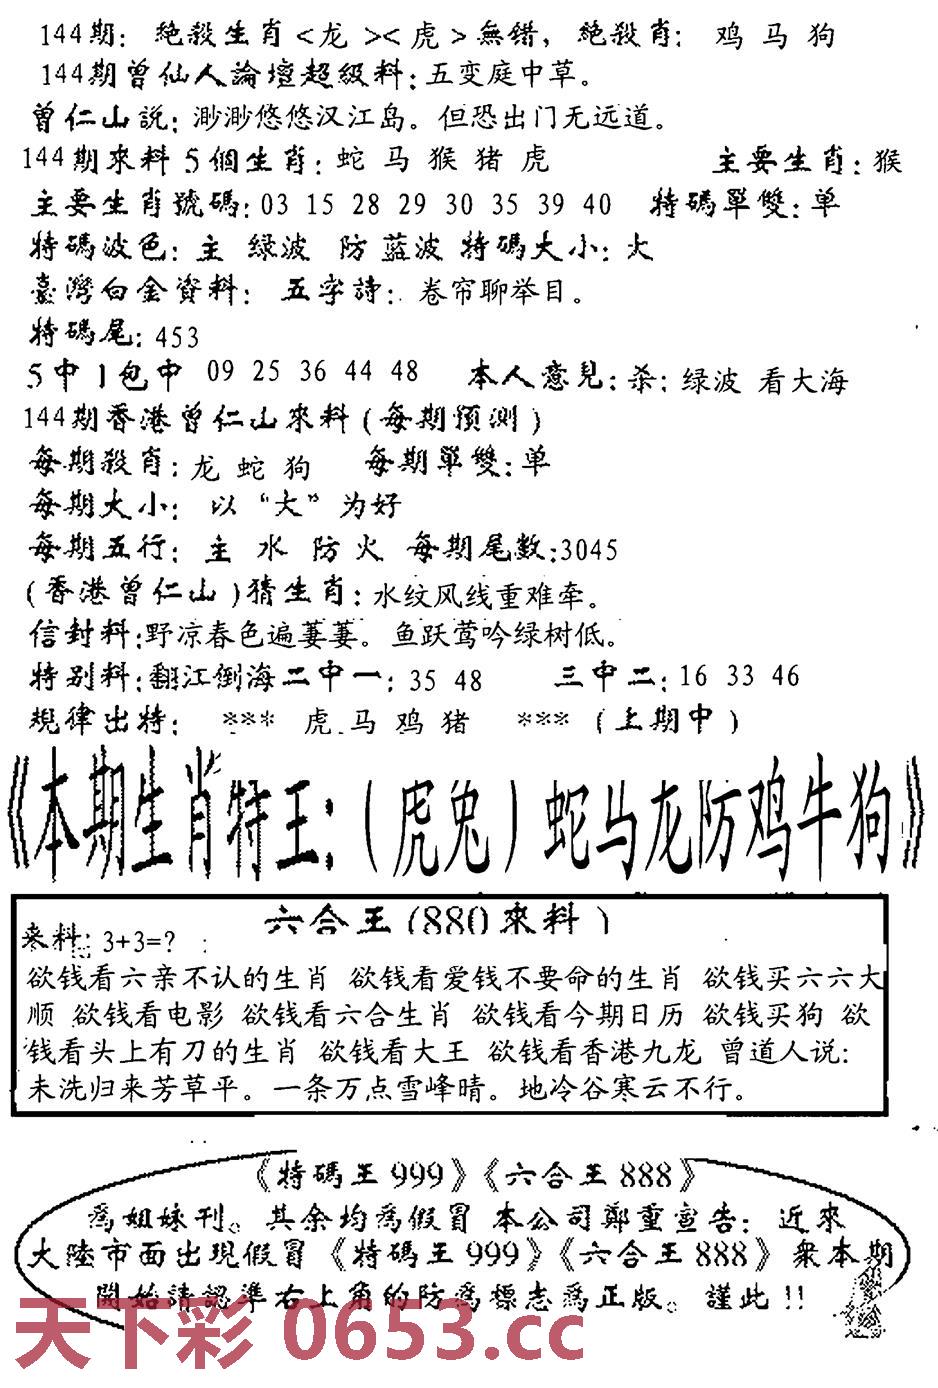 144期: 絶殺生肖<龙><虎>無错, 絶殺肖: 鸡 马 狗
144期曾仙人論壇超級料:五变庭中草。
曾仁山説:渺渺悠悠汉江岛。但恐出门无远道。
144期來料 5個生肖:蛇 马 猴 猪 虎 主要生肖:猴
主要生肖號碼:03 15 28 29 30 35 39 40 特碼單雙:单
特碼波色:主 绿波 防 蓝波 特碼大小:大
臺灣白金資料: 五字詩:卷帘聊举目。
特碼尾:453
5中1包中 09 25 36 44 48 本人意見:杀:绿波 看大海
144期香港曾仁山來料(每期预测)
每期殺肖:龙 蛇 狗 每期單雙:单
每期大小: 以“大”为好
每期五行: 主 水 防 火 每期尾数:3045
(香港曾仁山)猜生肖:水纹风线重难牵。
信封料:野凉春色遍萋萋。鱼跃莺吟绿树低。
特别料:翻江倒海二中一:35 48 三中二:16 33 46
规律出特: *** 虎 马 鸡 猪 *** (上期中)
《本期生肖特王:(虎兔)蛇马龙防鸡牛狗》
六合王(880來料)
来料: 3+3=? :
欲钱看六亲不认的生肖 欲钱看爱钱不要命的生肖 欲钱买六六大
顺 欲钱看电影 欲钱看六合生肖 欲钱看今期日历 欲钱买狗 欲
钱看头上有刀的生肖 欲钱看大王 欲钱看香港九龙 曾道人说:
未洗归来芳草平。一条万点雪峰晴。地冷谷寒云不行。
《特碼王999》《六合王888》
爲姐妹刊。其余均爲假冒 本公司鄭重宣告: 近來
大陸市面出現假冒《特碼王999》《六合王888》衆本期
開始請認準右上角的防爲標志爲正版。謹此!!
天下彩 0653.cc